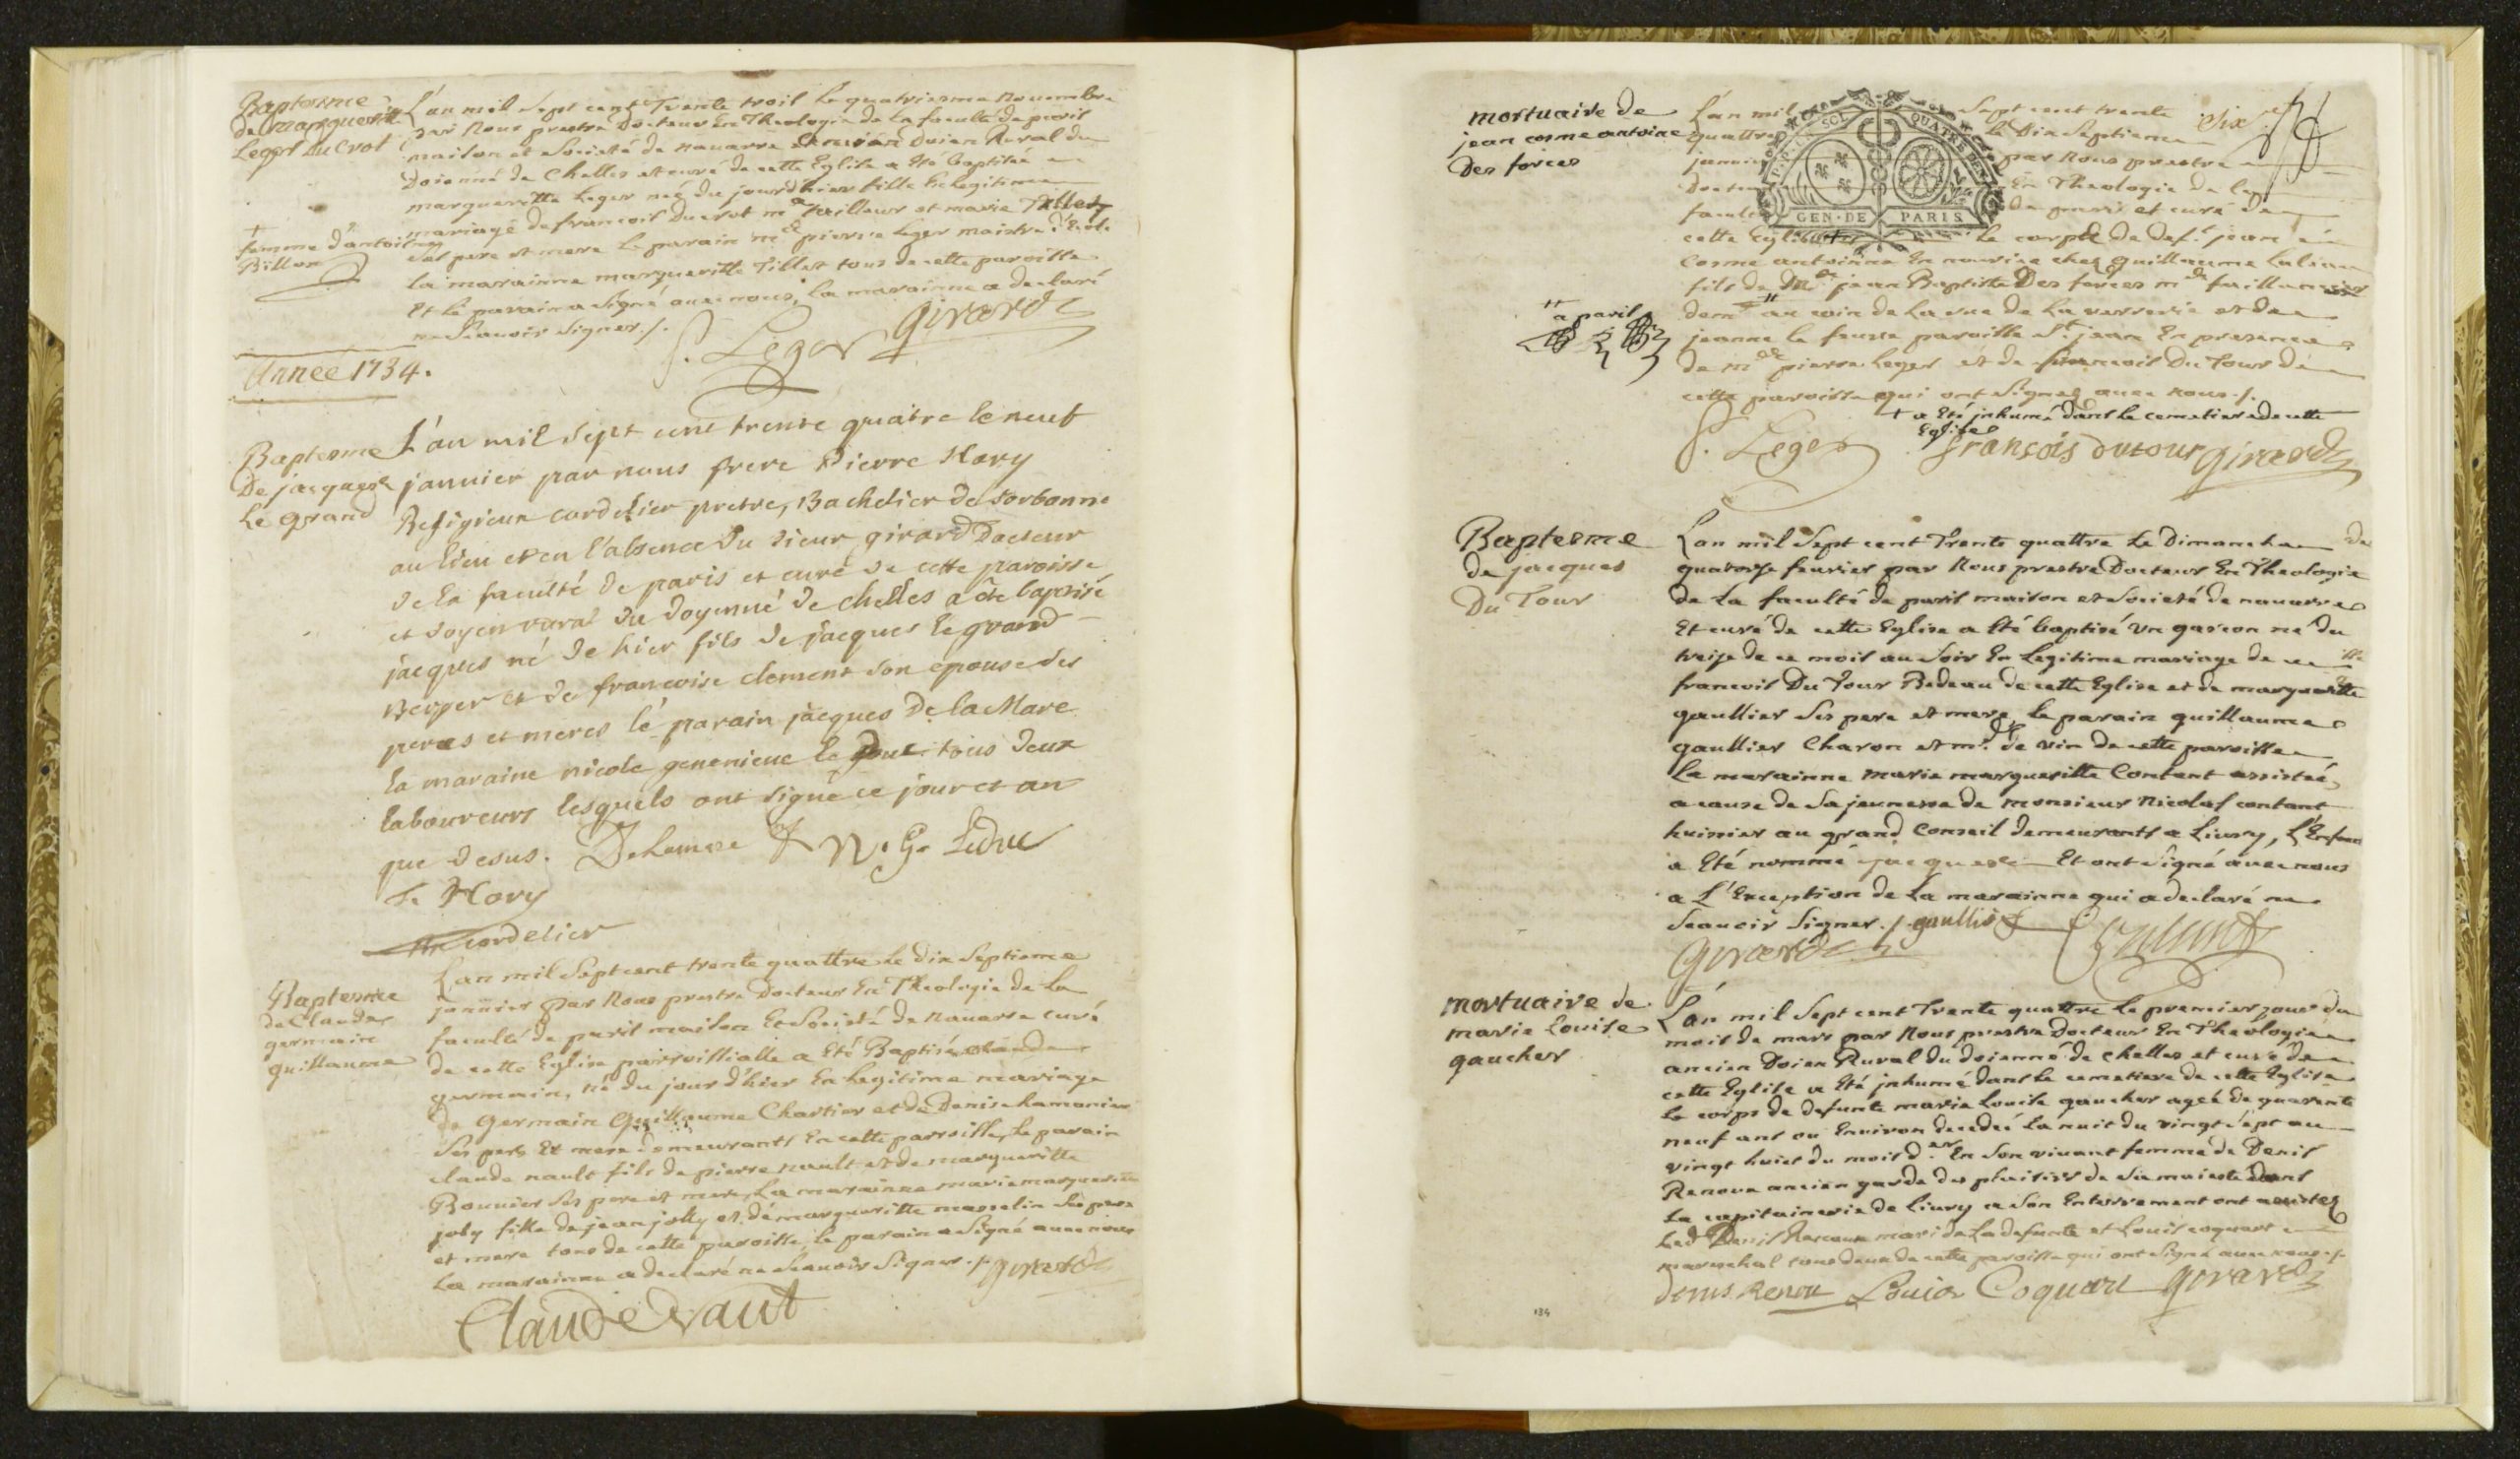 Baptesme
de margueritte
Leger Ducrot
L'an mil Sept cent Trente trois le quatriesme novembre
par Nous prestre Docteur En Theologie de La faculté de paris
maison et Societé de navarre ancien Doien Rural du
Doienné de Chelles et curé de cette Eglise a Eté baptisée
margueritte Leger née du jourdhier fille En legitime
mariage de francois Ducrot me tailleur et marie Tillet
ses pere et mere le parain me pierre Leger maistre d'Ecole
la marainne margueritte Tillet tous de cette paroisse
Et le parain a signé avec nous, la marainne a declaré
ne Scavoir signer ./.
+
femme d'antoine
Billon
P. Leger Girard
Année 1734.
Baptesme
De jacques
Le grand
L'an mil sept cent trente quatre le neuf
janvier par nous frere Pierre Hory
Religieux cordelier pretre, Bachelier de sorbonne
au lieu et en l'absence du sieur girard Docteur
de la faculté de paris et curé de cette paroisse
et doyen rural du doyenné de chelles a été baptisé
jacques né de hier fils de jacques le grand
Berger et de francoise clement son epouse ses
peres et meres le parain jacques De la Mare
la maraine nicole genevieve le Duc tous deux
laboureurs lesquels ont signé ce jour et an
que dessus. Delamare N. G. Leduc
f. Hory
cordelier
Baptesme
de Claude
germain
guillaume
L'an mil Sept cent trente quattre Le dix Septieme
janvier par Nous prestre Docteur En Theologie de La
faculté de paris maison Et Societé de Navarre curé
de cette Eglise parroissialle a Eté Baptisé claude
germain, né du jour d'hier En Legitime mariage
de Germain Guillaume Chartier et de Denise hamonier
Ses pere Et mere demeurants En cette parroisse, Le parain
claude nault fils de pierre nault et de margueritte
Bounier Ses pere et mere, La marainne marie margueritte
joly fille de jean jolly et de margueritte masselin Ses pere
et mere tous de cette paroisse, le parain a Signé avec nous
La marainne a declaré ne Scavoir Signer ./. Girard
Claude Naut
mortuaire de
jean cosme antoine
Des forces
P.P. LE SOL QUATRE DEN.
GEN. DE PARIS
L'an mil Sept cent trente Six
quattre le Dix Septieme
janvier par Nous prestre
Docteur En Theologie de la
faculté de paris et curé de
cette Eglise le corps de deft jean
Cosme antoinne En nourice chez guillaume
fils de me jean Baptiste Des forces md faillancier
demt au coin de La rue de La verrerie et de
jeanne le paroisse St jean En presence
de me pierre Leger et de francois Du Tour de
cette paroisse qui ont Signez avec nous ./.
a paris
+ a Eté inhumé dans le cemetiere de cette
Eglise
P. Leger françois dutour Girard
Baptesme
de jacques
Du Tour
L'an mil Sept cent Trente quattre Le Dimanche
quatorze fevrier par Nous prestre Docteur En Theologie
de La faculté de paris maison et Societé de navarre
Et curé de cette Eglise a Eté baptisé Un garcon né du
treize de ce mois au Soir En Legitime mariage de
francois Du Tour Bedeau de cette Eglise et de margueritte
gaullier Ses pere et mere, le parain guillaume
gaullier Charon et md de vin de cette paroisse
La marainne marie margueritte Contant assistée,
a cause de Sa jeunesse de monsieur Nicolas contant
huissier au grand Conseil demeurants a Livry, L'Enfant
a Eté nommé jacques Et ont Signé avec nous
a L'Exception de La marainne qui a declaré ne
Scavoir Signer ./. gaullier
Girard
mortuaire de
marie Louise
gaucher
L'an mil Sept cent Trente quattre Le premier jour du
mois de mars par Nous prestre Docteur En Theologie
ancien Doien Rural du doienné de Chelles et curé de
cette Eglise a Eté inhumé dans le cemetiere de cette Eglise
Le corps de defunte marie Louise gaucher agée de quarente
neuf ans ou Environ decedée La nuit du vingt Sept au
vingt huict du mois der En Son vivant femme de Denis
Renoux ancien garde des plaisirs de Sa majesté dans
La capitainerie de Livry a Son Enterrement ont assistez
Led Denis Renoux mari de La defunte et Louis coquart
mareschal tous deux de cette paroisse qui ont Signé avec nous ./.
denis Renou Louis Coquart Girard
134